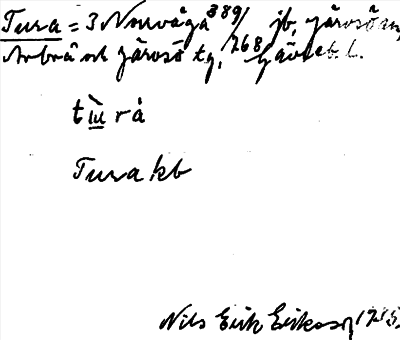 Tura = 3 Norrvåga 389/ jb, Järvsö sn,
Arbrå och Järvsö tg, 768 Gävleb. l.
tu̇rå
Tura kb
Nils Erik Eriksson, 1935.